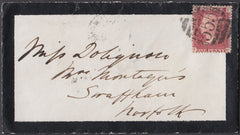 Miss Dolignon
Mrs Montagu's
Swaffham
Norfolk